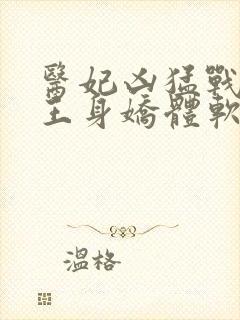 醫妃凶猛戰
王身嬌體軟
溫格